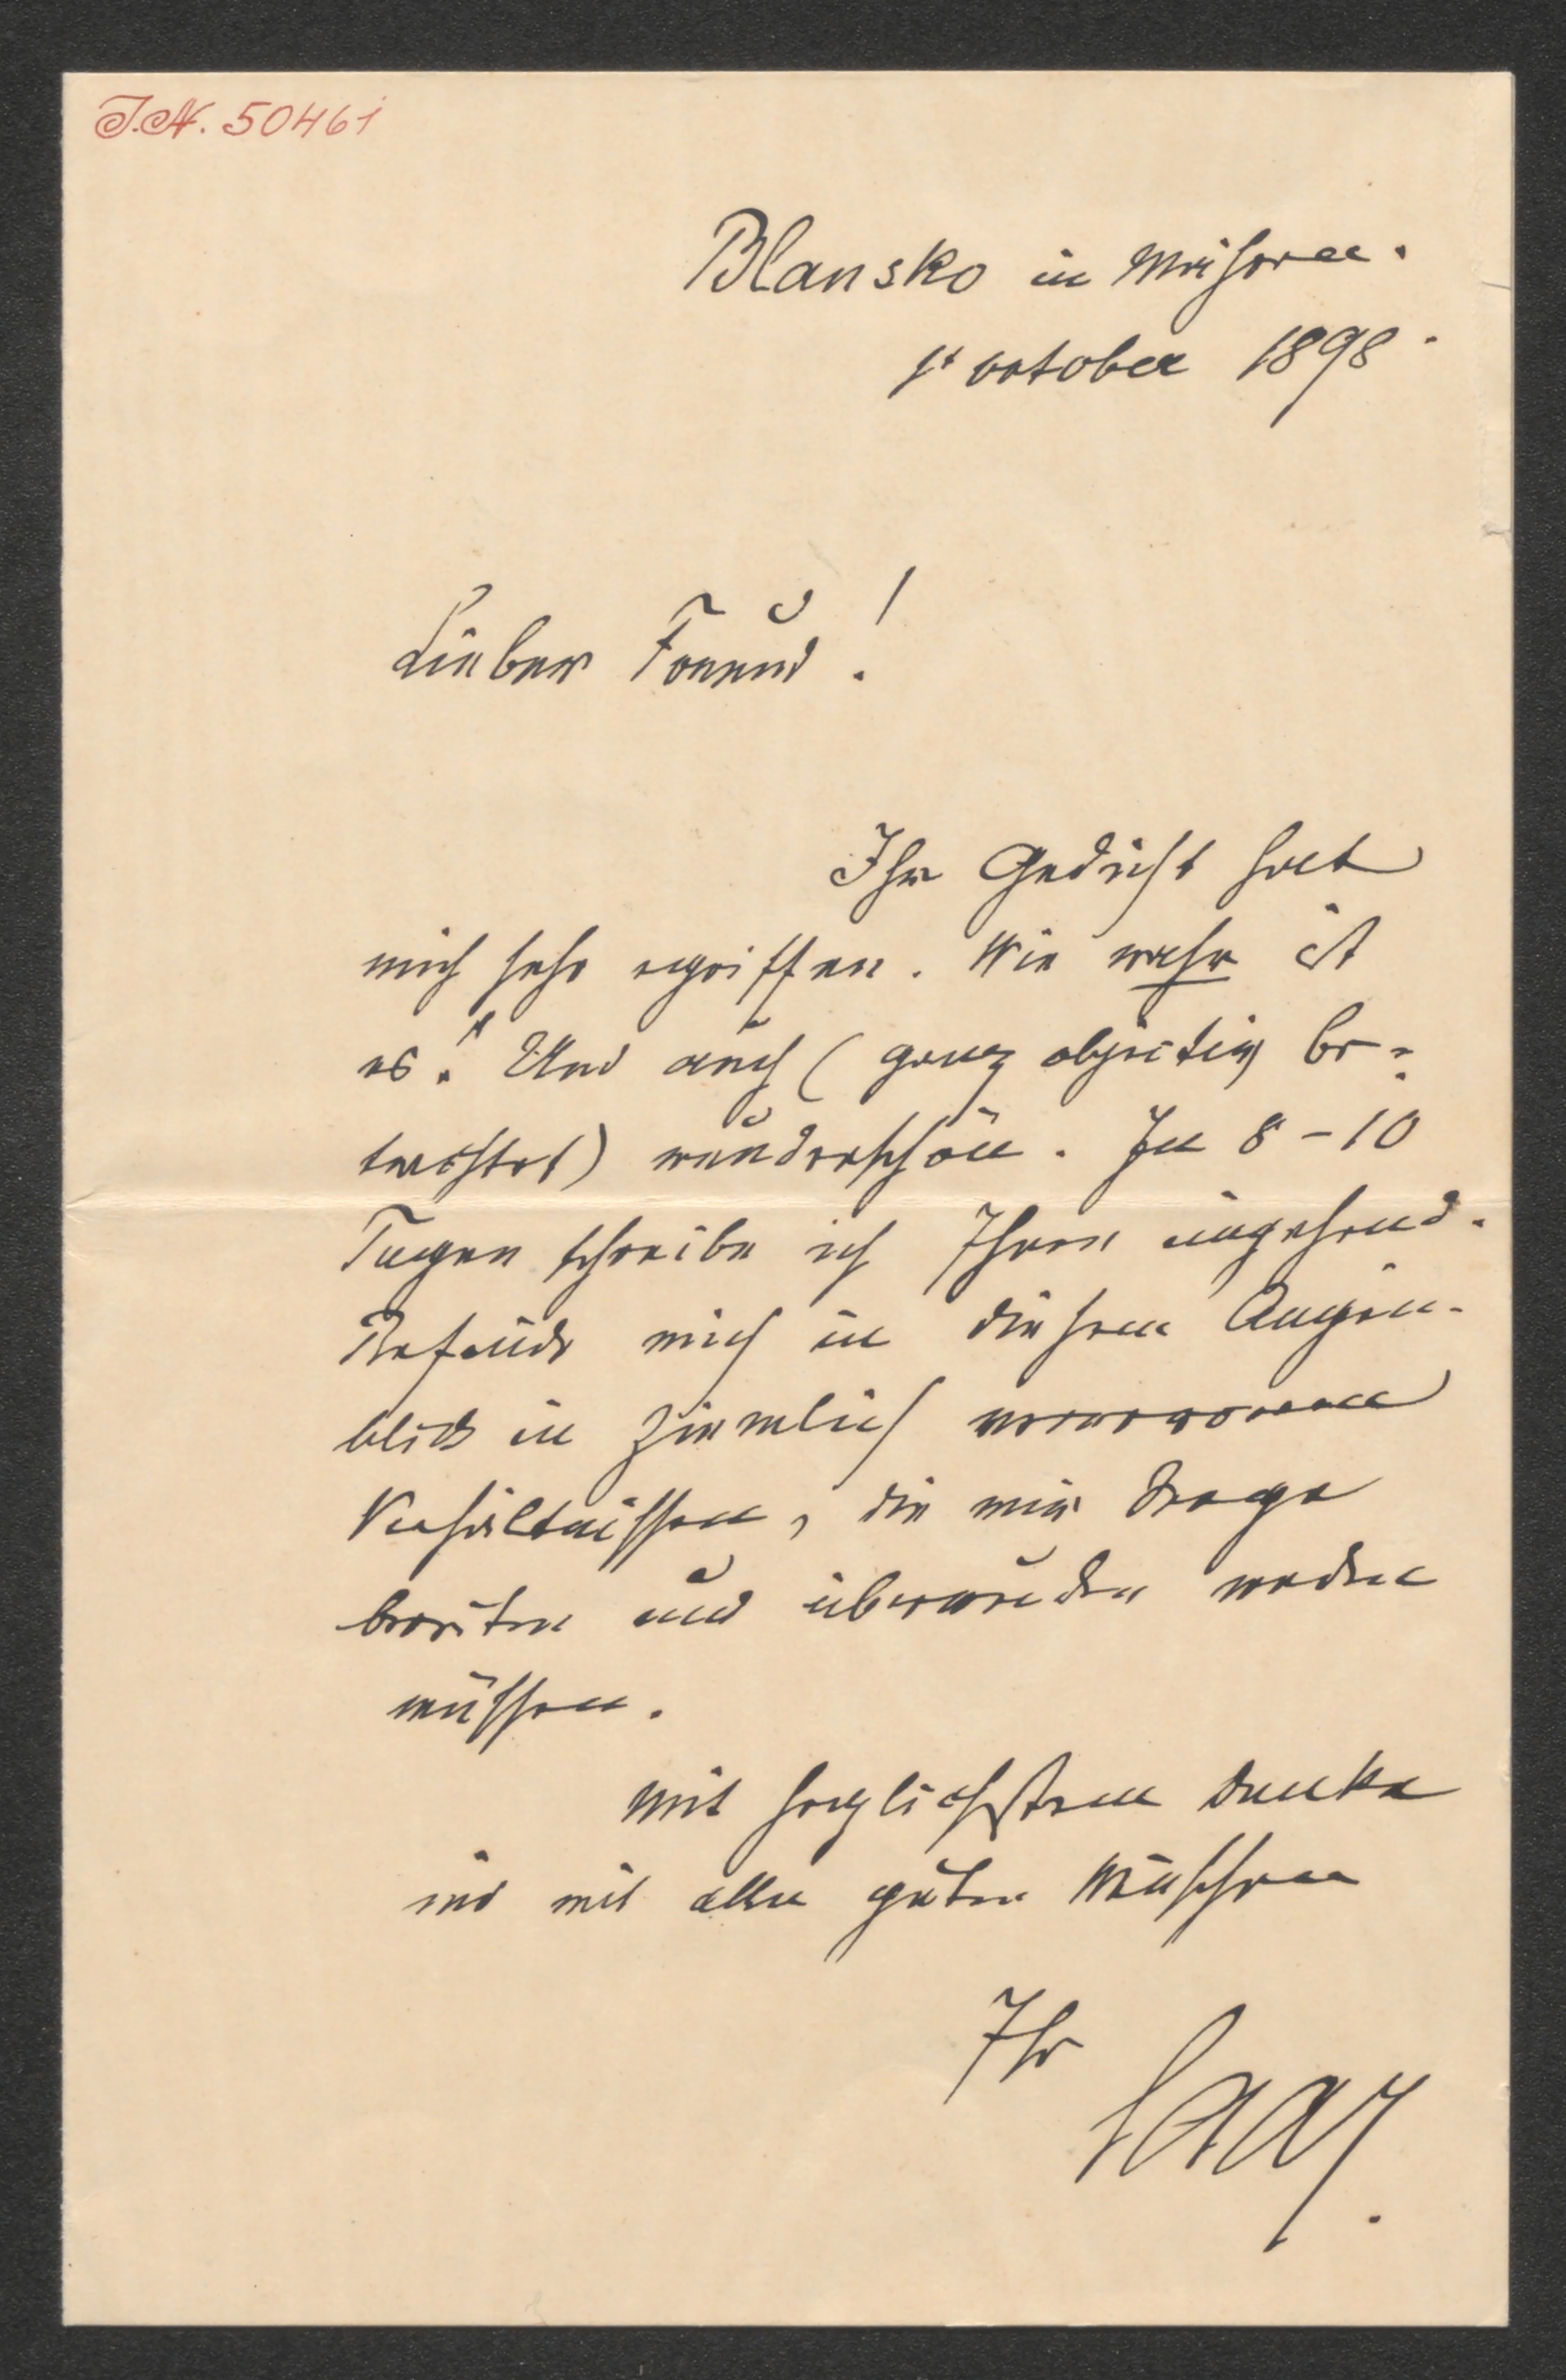 I.N. 50461
Blansko in Mähren.
1t october 1898.
Lieber Freund!
Ihr Gedicht hat
mich sehr ergriffen. Wie wahr ist
es! Und auch (ganz objectiv be-
trachtet) wunderschön. In 8-10
Tagen schreibe ich Ihnen eingehend.
Befinde mich in diesem Augen-
blick in ziemlich verworrenen
Verhältnissen, die mir Sorge
bereiten und überwunden werden
müssen.
Mit herzlichstem Danke
und mit allen guten Wünschen
Ihr
Saar.